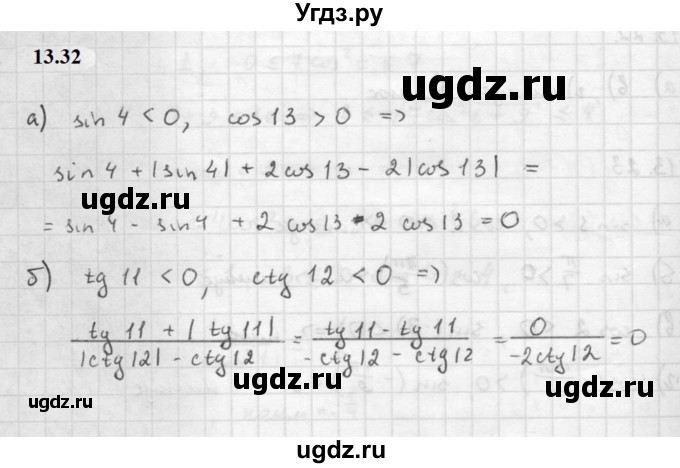 Угдз.ру
13.32
а) sin 4 < 0, cos 13 > 0 =>
sin 4 + |sin 4| + 2 cos 13 - 2|cos 13| =
= sin 4 - sin 4 + 2 cos 13 - 2 cos 13 = 0
б) tg 11 < 0, ctg 12 < 0 =>
tg 11 + |tg 11| / |ctg 12| - ctg 12 = tg 11 - tg 11 / -ctg 12 - ctg 12 = 0 / -2ctg 12 = 0
ugdz.ru
ugdz.ru
ugdz.ru
ugdz.ru
ugdz.ru
ugdz.ru
ugdz.ru